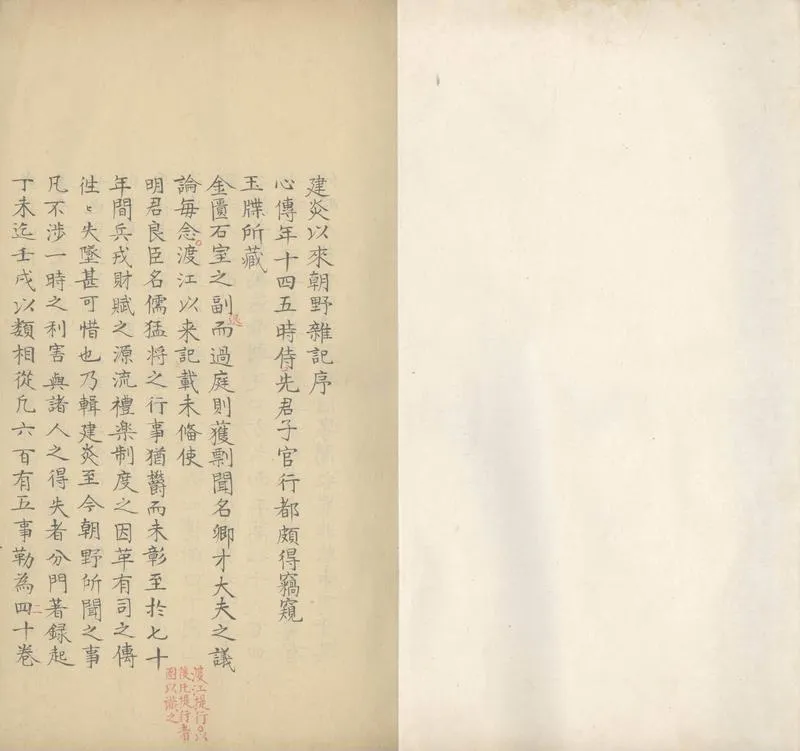 建炎以來朝野雜記序
心傳年十四五時侍先君子官行都頗得竊窺
玉牒所藏
金匱石室之副而過庭則獲剽聞名卿才大夫之議
退
論每念渡江以来記載未俻使
明君良臣名儒猛將之行事猶欝而未彰至於七十
渡江提行○以
後凡提行者
圈以識之
年間兵戎財賦之源流禮楽制度之因革有司之傳
徃〻失墜甚可惜也乃輯建炎至今朝野所聞之事
凡不渉一時之利害與諸人之得失者分門著録起
丁未迄壬戌以類相從凡六百有五事勒為四十卷
二